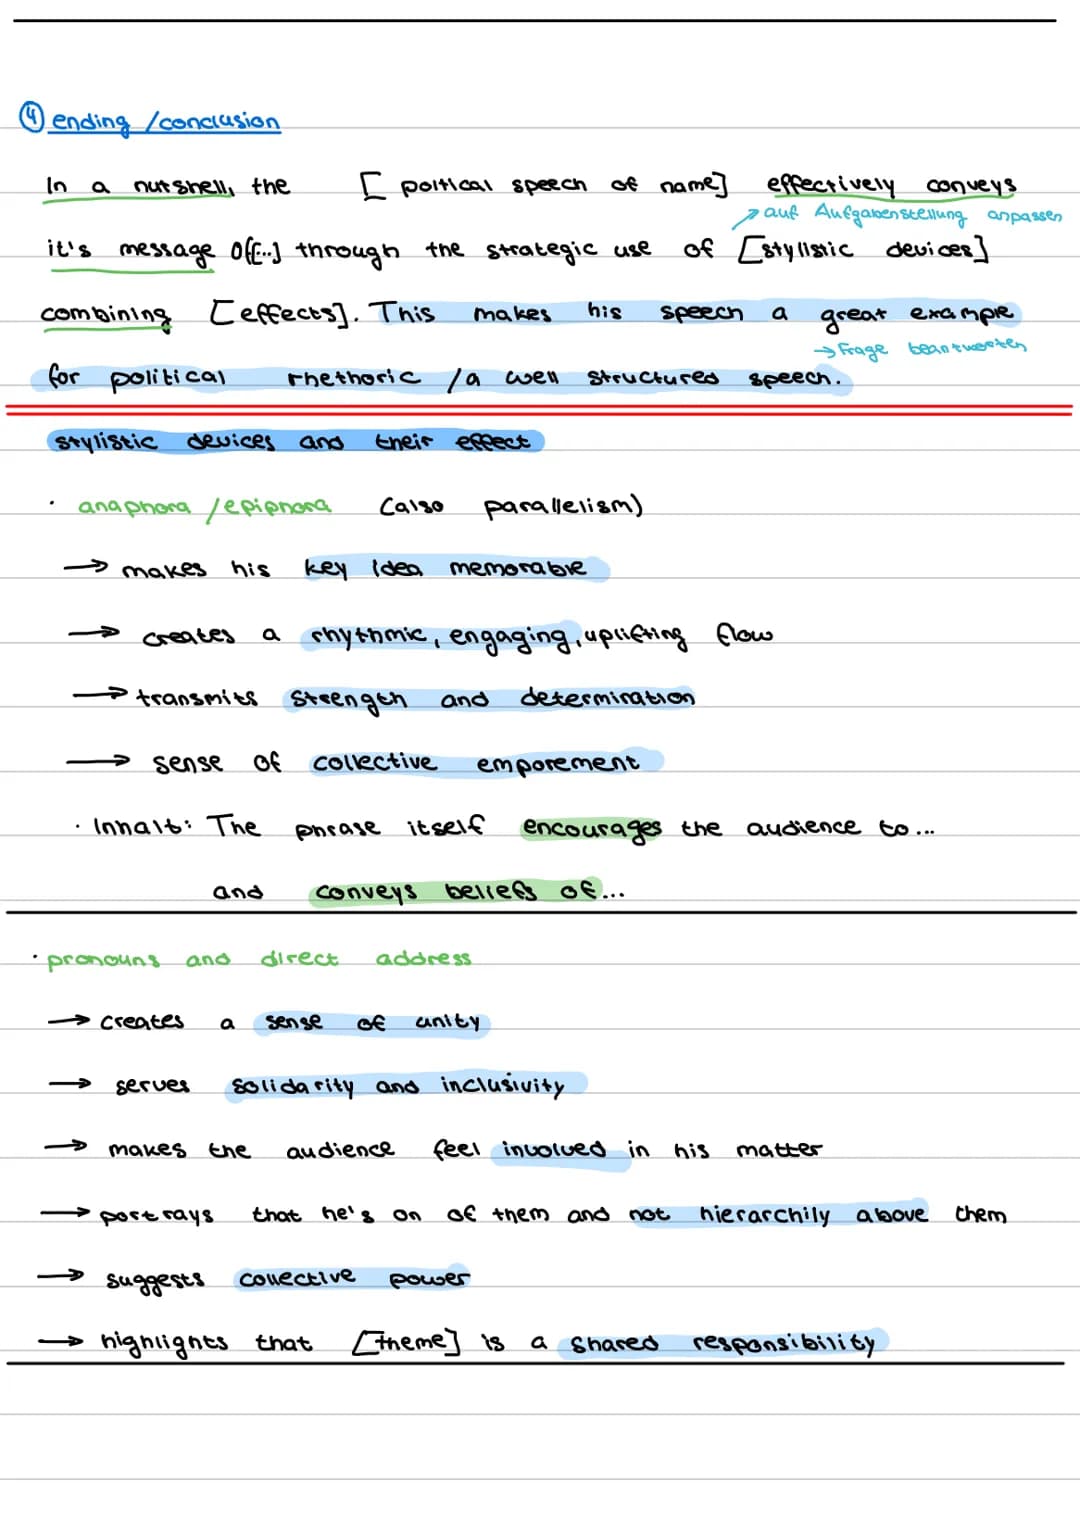 ④ ending /conclusion
In a nutshell, the [ poltical speech of name] effectively conveys
→ auf Aufgabenstellung anpassen
it's message of[...] through the strategic use of [stylistic devices]
combining [effects]. This makes his speech a great example
→ Frage beantworten
for political rhethoric /a well structured speech.
stylistic devices and their effect
· anaphora /epiphora (also parallelism)
→ makes his key idea memorable
→ creates a rhythmic, engaging, uplifting flow
→ transmits strength and determination
→ sense of collective emporement
· Inhalt: The phrase itself encourages the audience to...
and conveys beliefs of...
· pronouns and direct address
→ creates a sense of unity
→ serves solidarity and inclusivity
→ makes the audience feel involved in his matter
→ portrays that he's on of them and not hierarchily above them
→ suggests collective power
→ highlights that [theme] is a shared responsibility